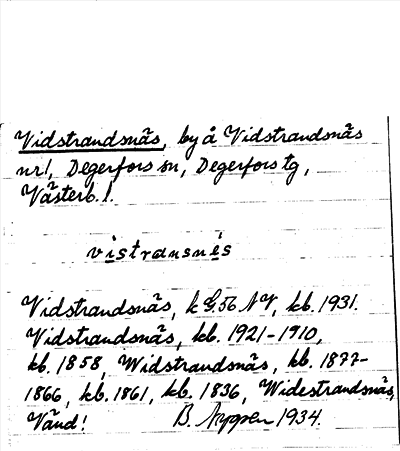 Vidstrandsnäs, by å Vidstrandsnäs
nr 1, Degerfors sn, Degerfors tg,
Västerb. l.
vistransnés
Vidstrandsnäs, k G.56 NV, kb. 1931.
Vidstrandsnäs, kb. 1921-1910,
kb. 1858, Widstrandsnäs, kb. 1877-
1866, kb. 1861, kb. 1836, Widestrandsnäs,
Vänd! B. 1934.